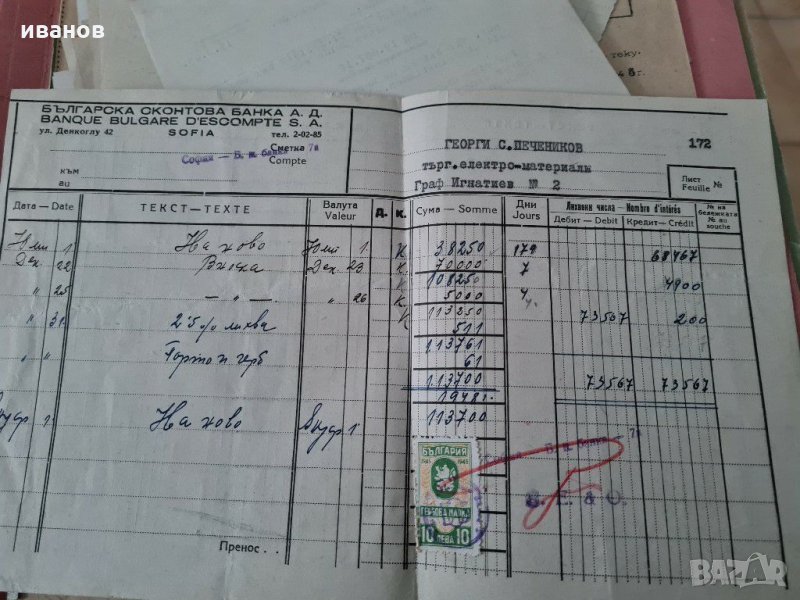 иванов
теку.
БЪЛГАРСКА СКОНТОВА БАНКА А. Д.
BANQUE BULGARE D'ESCOMPTE S. A.
ул. Денкоглу 42 SOFIA тел. 2-02-85
Сметка 7а
Compte
София — Б. и. банка
към
au
ГЕОРГИ С. ПЕЧЕНИКОВ 172
търг. електро-материали
Граф Игнатиев № 2
Лист
Feuille №
Дата — Date ТЕКСТ — TEXTE Валута Valeur Д. К. Сума — Somme Дни Jours Лихвени числа — Nombre d'intérès Дебит — Debit Кредит — Crédit № на бележката № du souche
Юли 1 На ново Юли 1 К 38250 179 68467
Дек. 22 Вноска Дек 23 К. 70000 7 4900
108250
" 25 — " — " 26 К. 5000 4 200
113250
" 31 2·5% лихва К 511 73567
113761
" " 61
113700 73567 73567
1948 г.
Януар 1 На ново Януар 1 113700
БЪЛГАРИЯ
1945 1945
ГЕРБОВА МАРКА
10 ЛЕВА 10
София Б. и. банка — 7а
S. E. & O.
Пренос . .
BAZAR